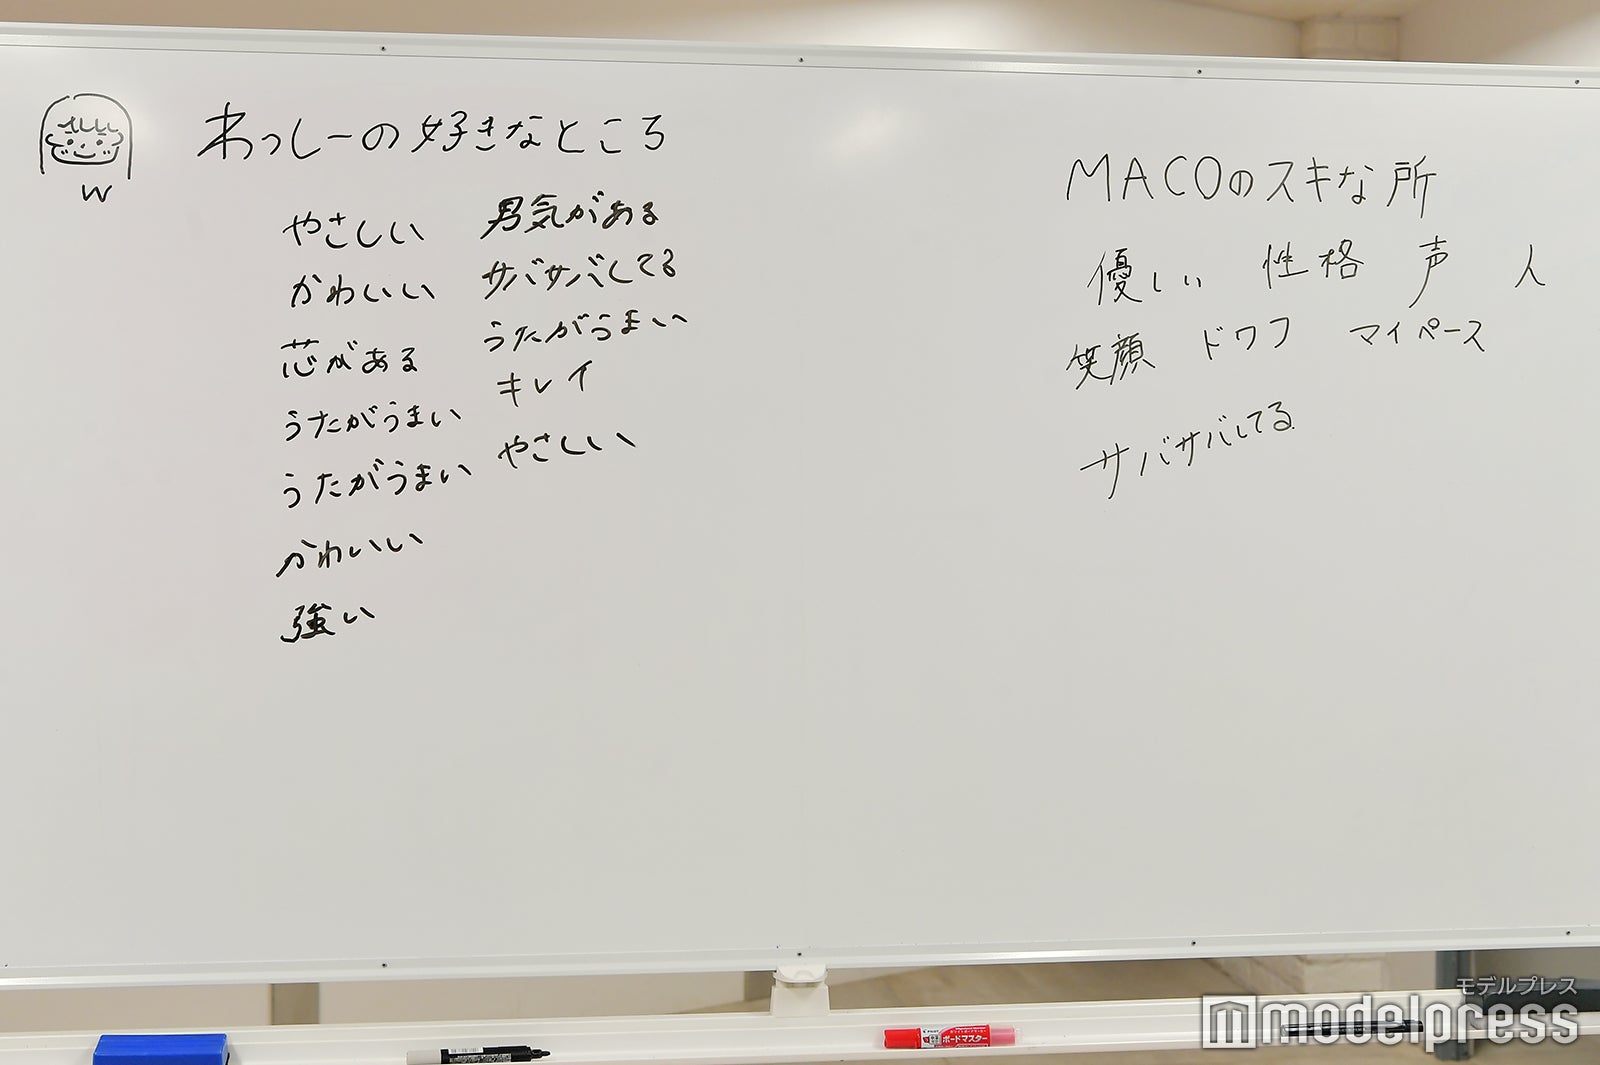 w
わっしーの好きなところ
やさしい
かわいい
芯がある
うたがうまい
うたがうまい
かわいい
強い
男気がある
サバサバしてる
うたがうまい
キレイ
やさしい
MACOのスキな所
優しい 性格 声 人
笑顔 ドワフ マイペース
サバサバしてる
ボードマスター
モデルプレス
modelpress